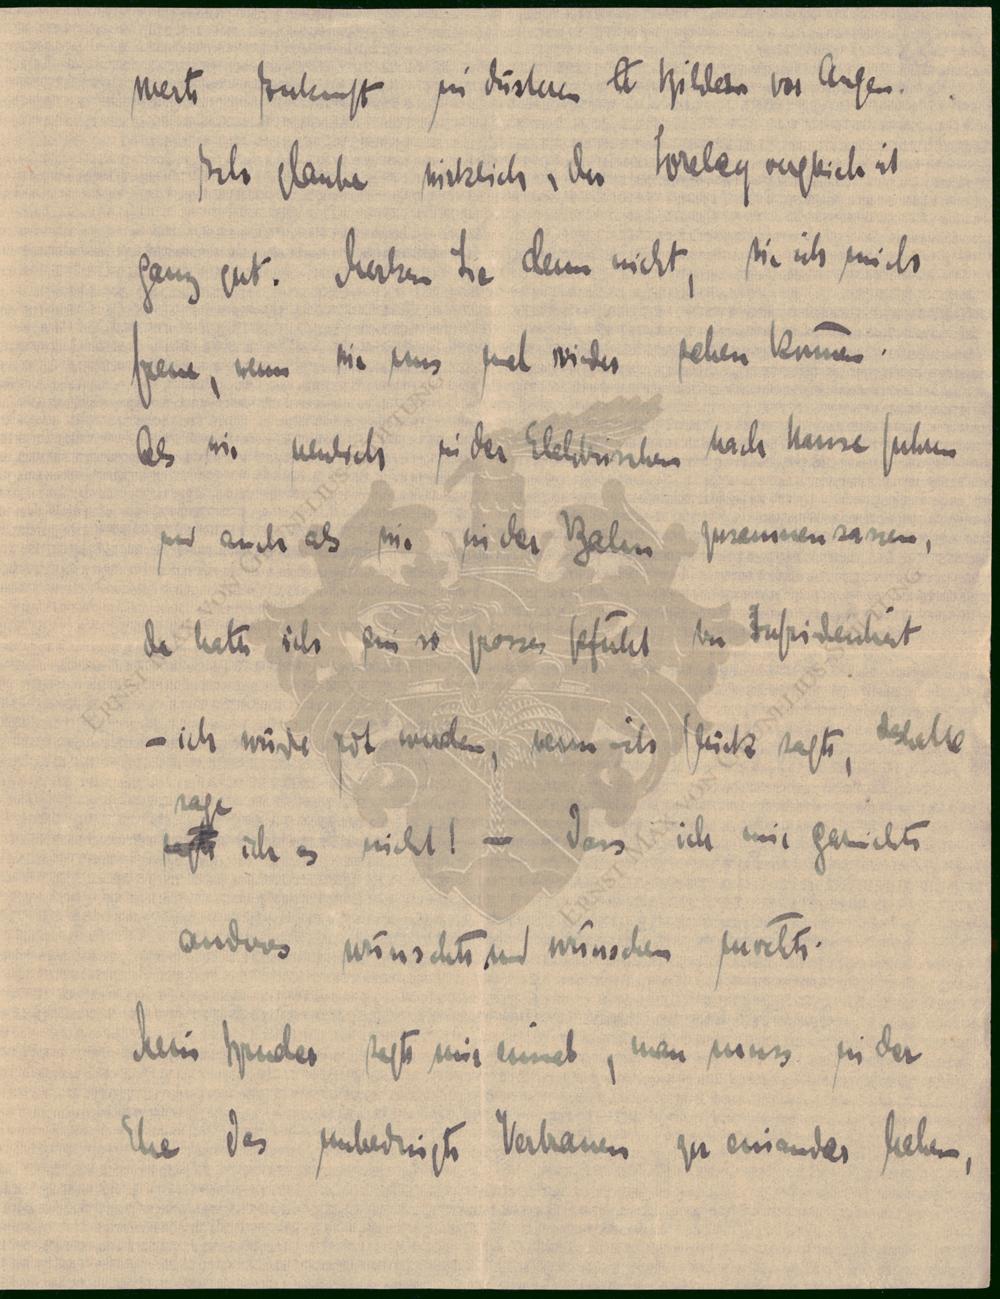 werte Zukunft in düsteren Bildern vor Augen.
Ich glaube wirklich, der Loreley vergleich ist
ganz gut. Merken Sie denn nicht, wie ich mich
freue, wenn wir uns mal wieder sehen können.
Als wir neulich in der Elektrischen nach Hause fuhren
und auch als wir in der Bahn zusammensassen,
da hatte ich ein so grosses Gefühl von Zufriedenheit
– ich würde rot werden, wenn ich Glück sagte, deshalb
sage
ich es nicht! – Dass ich mir garnichts
anderes wünschte und wünschen möchte.
Mein Bruder sagte mir einmal, man muss in der
Ehe das unbedingte Vertrauen zu einander haben,
ERNST MAX VON GRUNELIUS STIFTUNG
ERNST MAX VON GRUNELIUS STIFTUNG